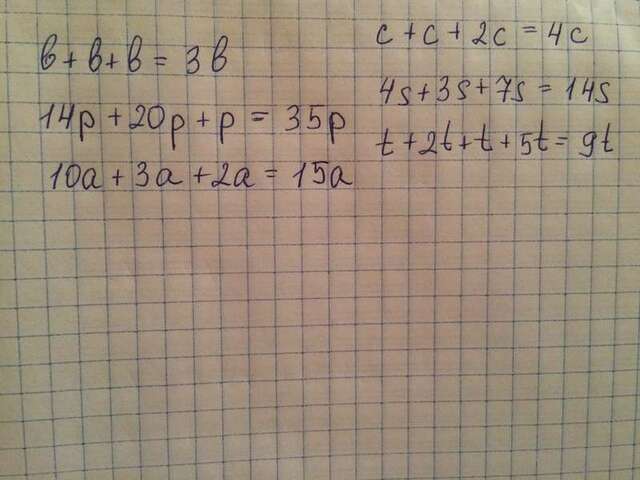 b + b + b = 3b
14p + 20p + p = 35p
10a + 3a + 2a = 15a
c + c + 2c = 4c
4s + 3s + 7s = 14s
t + 2t + t + 5t = 9t